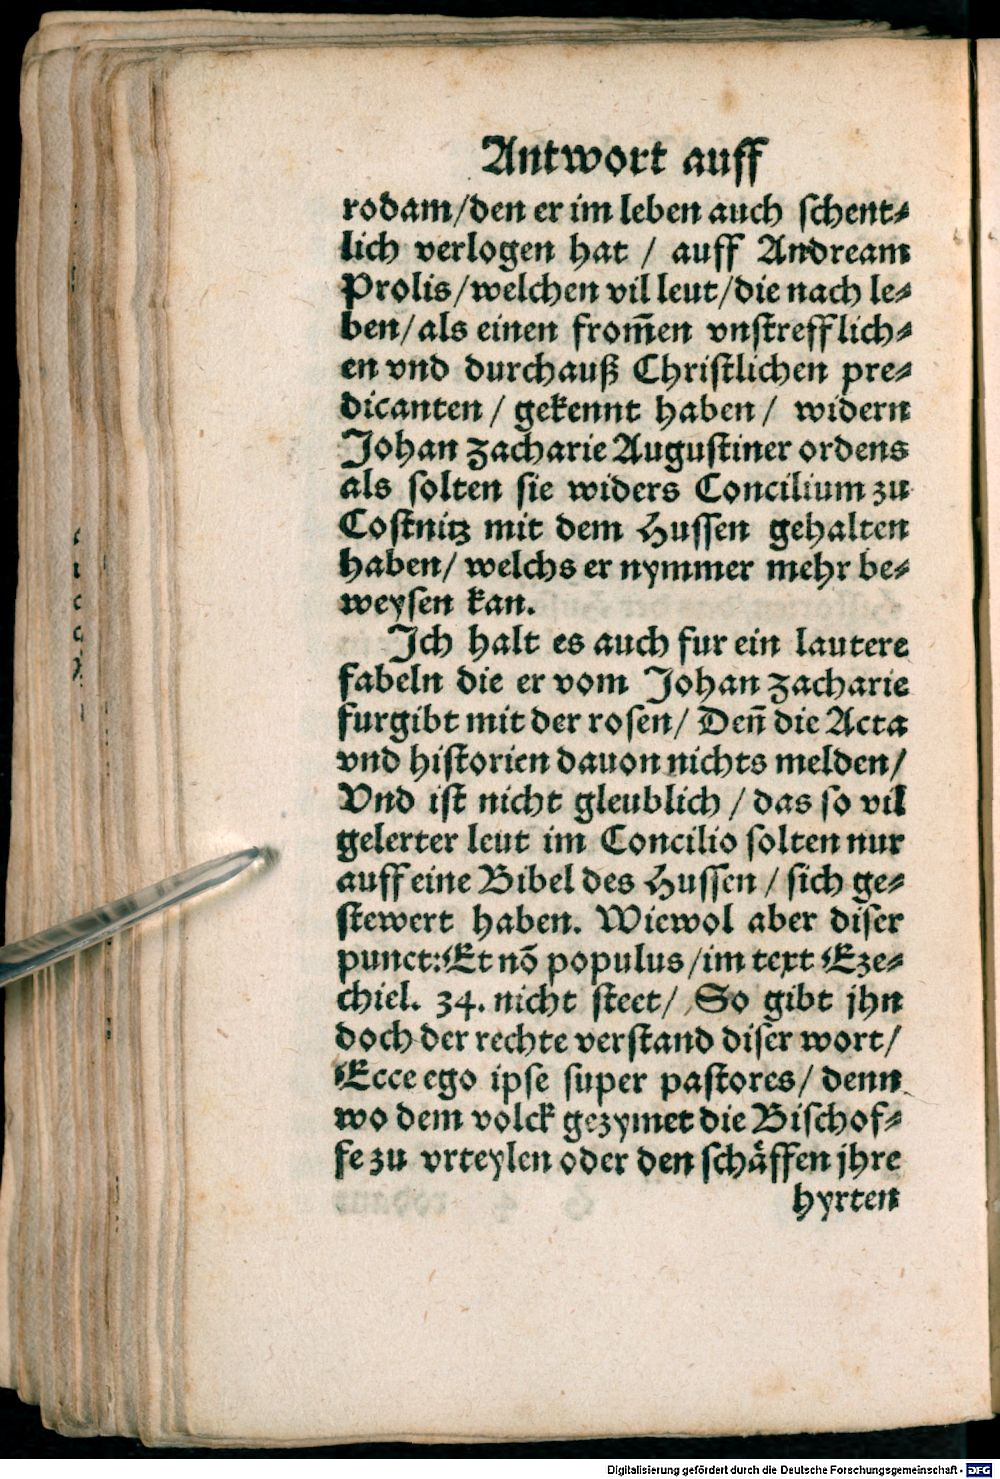 Antwort auff
rodam/den er im leben auch schent⸗
lich verlogen hat / auff Andream
Prolis/welchen vil leut/die nach le⸗
ben/als einen from̃en vnstrefflich⸗
en vnd durchauß Christlichen pre⸗
dicanten / gekennt haben / widern
Johan zacharie Augustiner ordens
als solten sie widers Concilium zu
Costnitz mit dem Hussen gehalten
haben/ welchs er nymmer mehr be⸗
weysen kan.
Ich halt es auch fur ein lautere
fabeln die er vom Johan zacharie
furgibt mit der rosen/ Deñ die Acta
vnd historien dauon nichts melden/
Vnd ist nicht gleublich / das so vil
gelerter leut im Concilio solten nur
auff eine Bibel des Hussen / sich ge⸗
stewert haben. Wiewol aber diser
punct: Et nõ populus/im text Eze⸗
chiel. 34. nicht steet/ So gibt jhn
doch der rechte verstand diser wort/
Ecce ego ipse super pastores/ denn
wo dem volck gezymet die Bischof⸗
fe zu vrteylen oder den schäffen jhre
hyrten
Digitalisierung gefördert durch die Deutsche Forschungsgemeinschaft - DFG